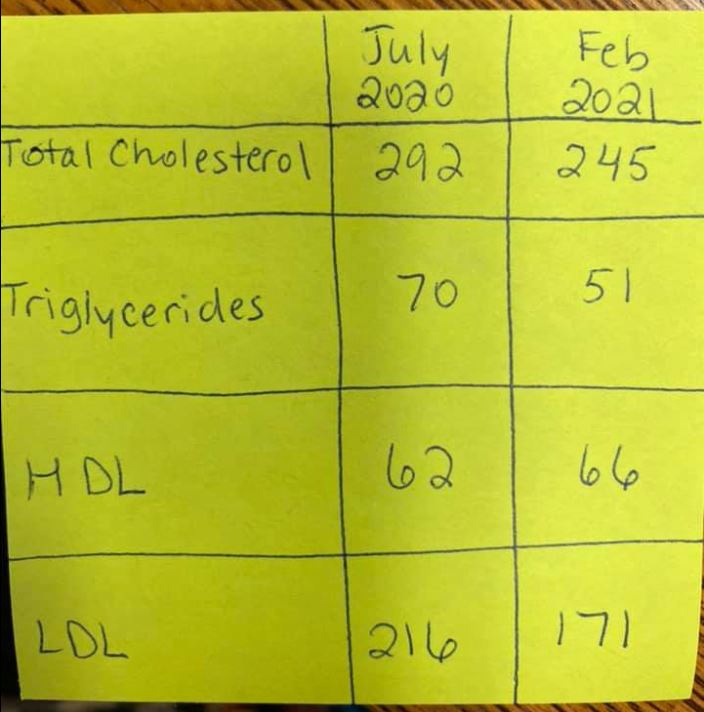 July 2020 Feb 2021
Total Cholesterol 292 245
Triglycerides 70 51
HDL 62 66
LDL 216 171